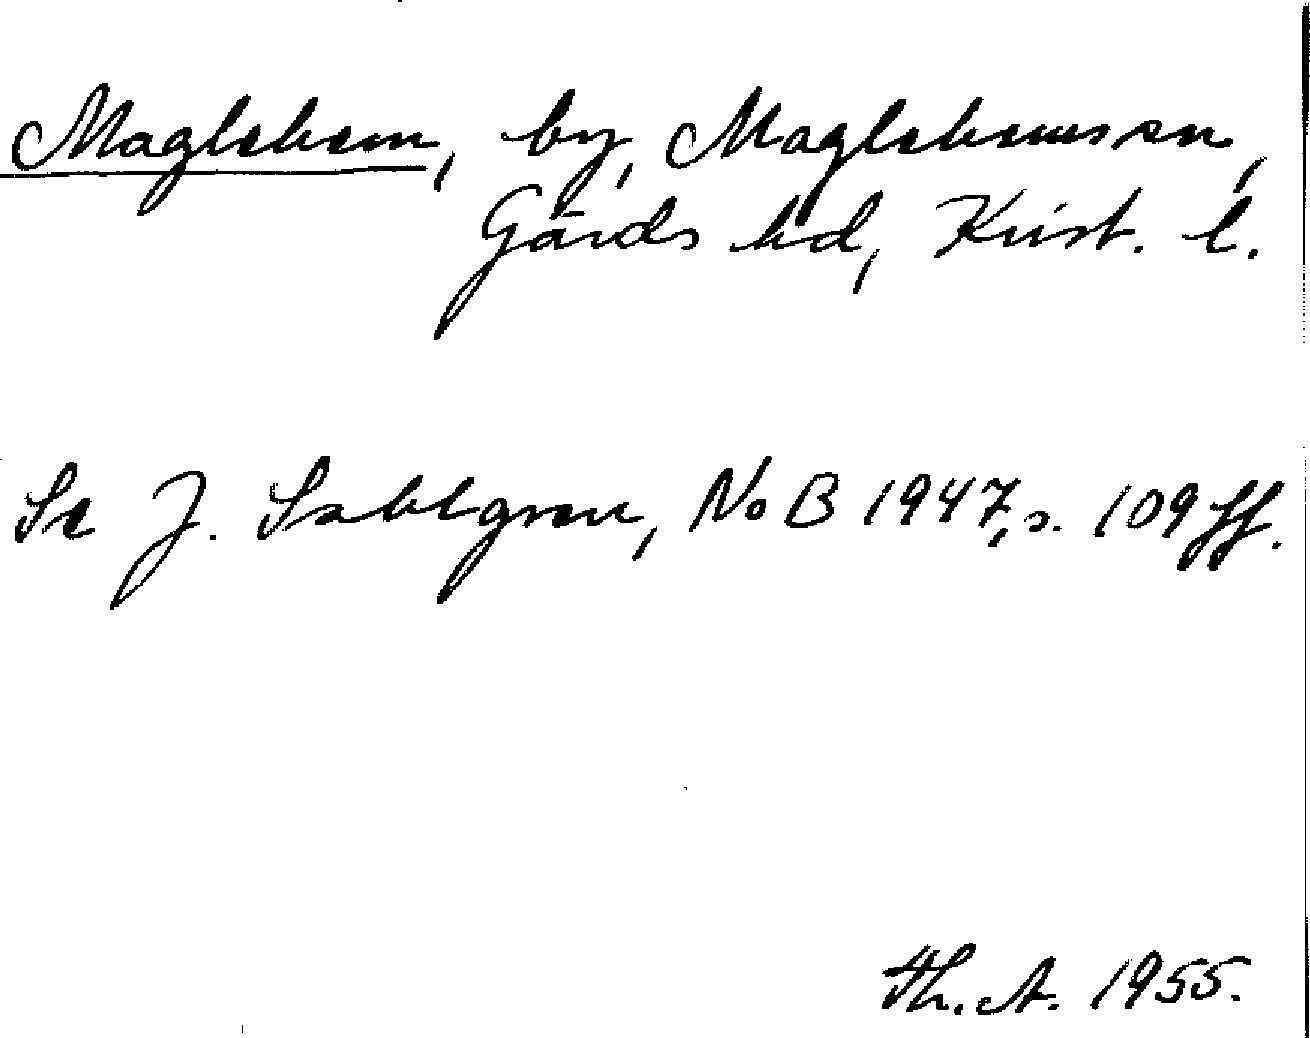 Maglehem, by, Maglehems sn,
Gärds hd, Krist. l.
Se J. Sahlgren, NoB 1947, s. 109 ff.
Th. A. 1955.